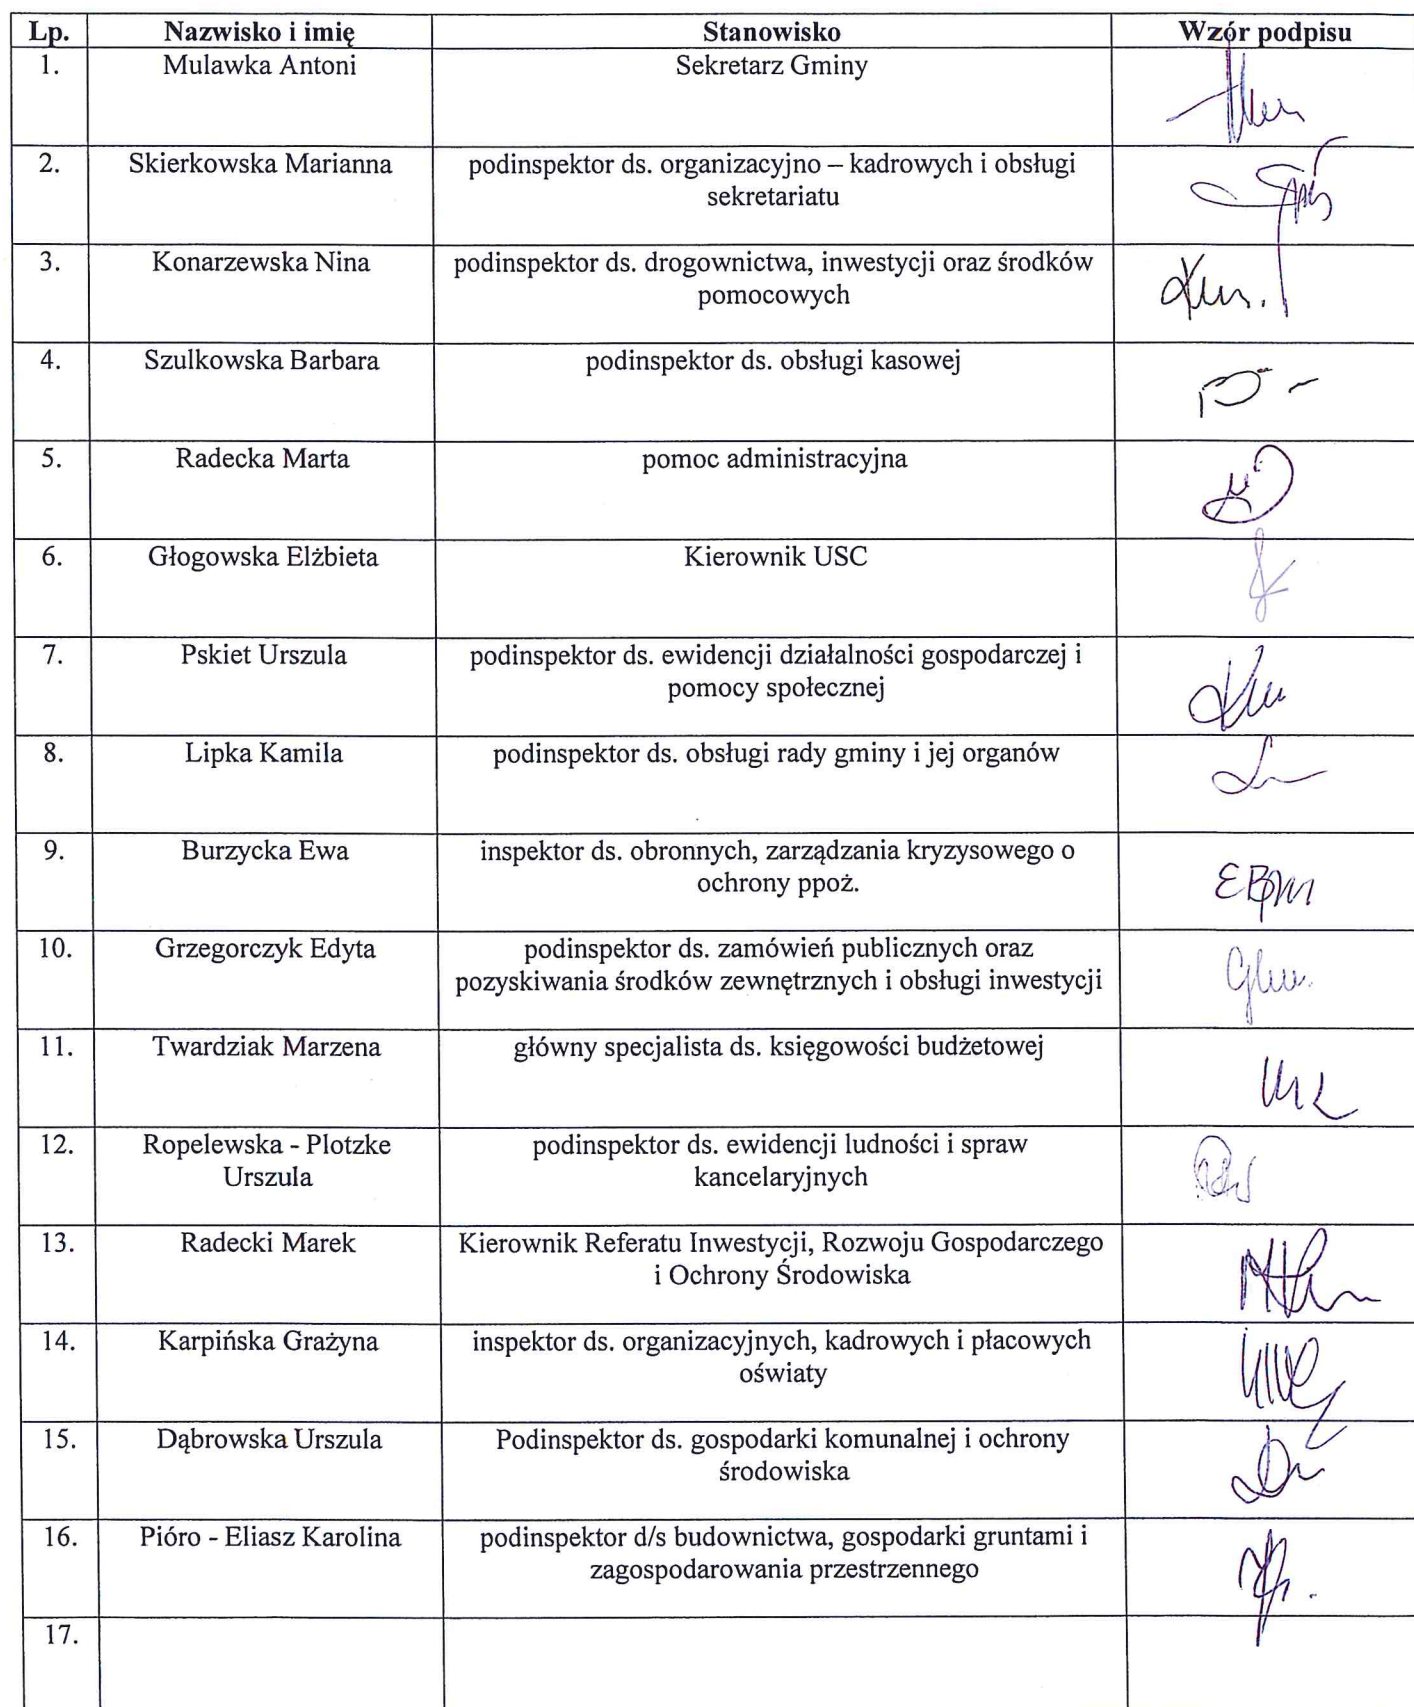 Lp. Nazwisko i imię Stanowisko Wzór podpisu
1. Mulawka Antoni Sekretarz Gminy
2. Skierkowska Marianna podinspektor ds. organizacyjno – kadrowych i obsługi
sekretariatu
3. Konarzewska Nina podinspektor ds. drogownictwa, inwestycji oraz środków
pomocowych
4. Szulkowska Barbara podinspektor ds. obsługi kasowej
5. Radecka Marta pomoc administracyjna
6. Głogowska Elżbieta Kierownik USC
7. Pskiet Urszula podinspektor ds. ewidencji działalności gospodarczej i
pomocy społecznej
8. Lipka Kamila podinspektor ds. obsługi rady gminy i jej organów
9. Burzycka Ewa inspektor ds. obronnych, zarządzania kryzysowego o
ochrony ppoż.
10. Grzegorczyk Edyta podinspektor ds. zamówień publicznych oraz
pozyskiwania środków zewnętrznych i obsługi inwestycji
11. Twardziak Marzena główny specjalista ds. księgowości budżetowej
12. Ropelewska - Plotzke podinspektor ds. ewidencji ludności i spraw
Urszula kancelaryjnych
13. Radecki Marek Kierownik Referatu Inwestycji, Rozwoju Gospodarczego
i Ochrony Środowiska
14. Karpińska Grażyna inspektor ds. organizacyjnych, kadrowych i płacowych
oświaty
15. Dąbrowska Urszula Podinspektor ds. gospodarki komunalnej i ochrony
środowiska
16. Pióro - Eliasz Karolina podinspektor d/s budownictwa, gospodarki gruntami i
zagospodarowania przestrzennego
17.